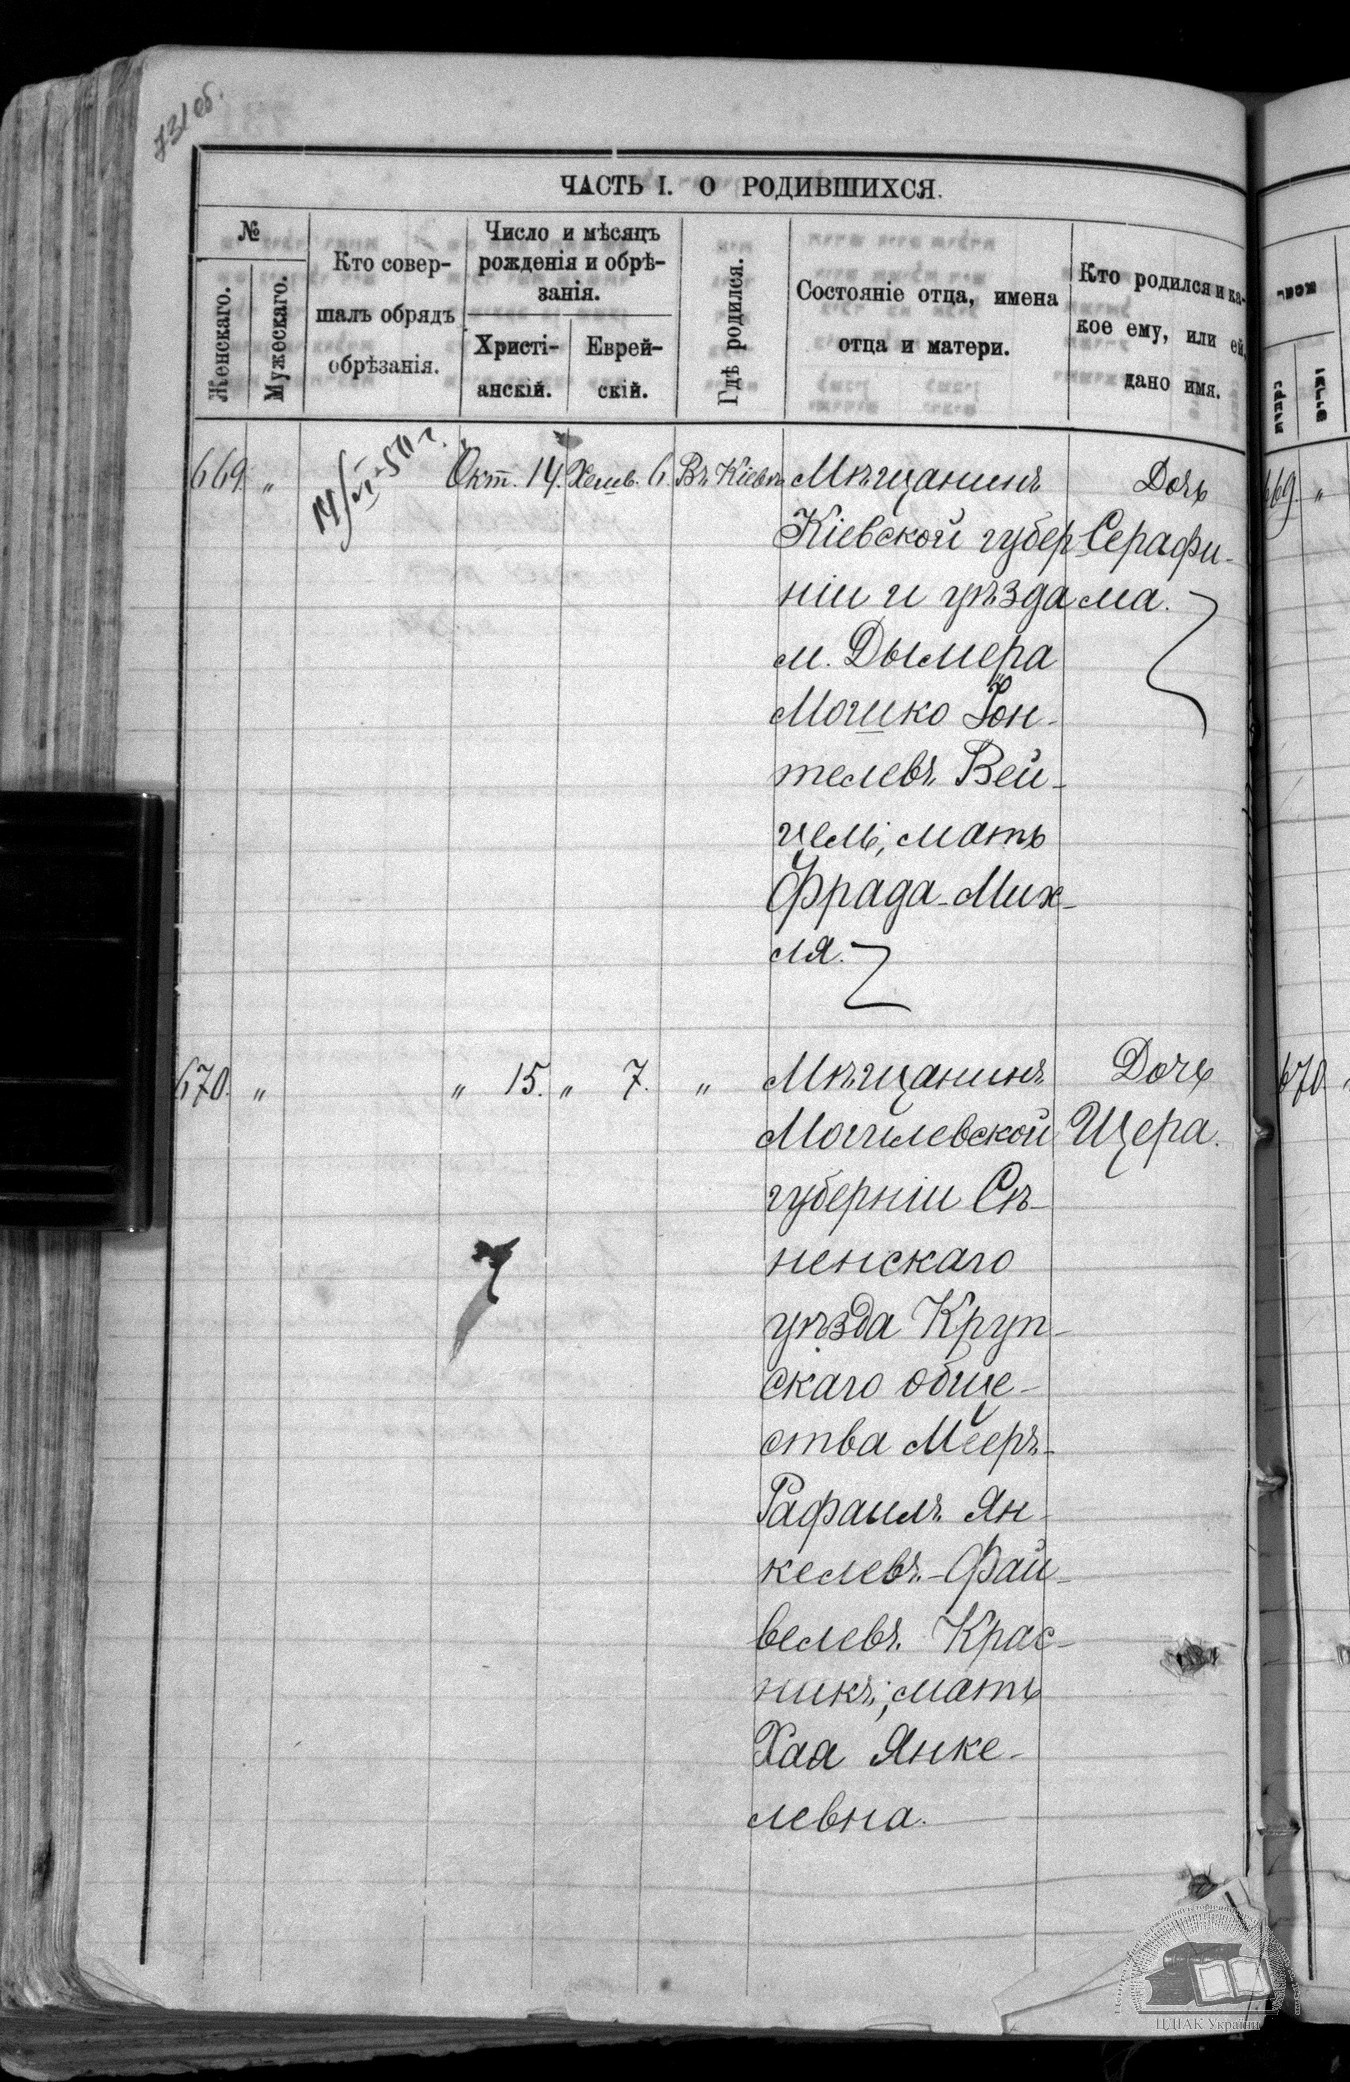 731 об.
ЧАСТЬ I. О РОДИВШИХСЯ.
№
Женскаго.
Мужескаго.
Кто совер-
шалъ обрядъ
обрѣзанія.
Число и мѣсяцъ
рожденія и обрѣ-
занія.
Христі-
анскій.
Еврей-
скій.
Гдѣ родился.
Состояніе отца, имена
отца и матери.
Кто родился и ка-
кое ему, или ей,
дано имя.
669. „ 14/VI-50 г. Окт. 14. Хешв. 6. Въ Кіевѣ Мѣщанинъ Дочь
Кіевской губер- Серафи-
ніи и уѣзда ма.
м. Дымера
Мошко Іон-
телевъ Вей-
цель, мать
Фрада-Мих-
ля.
670. „ „ 15. „ 7. „ Мѣщанинъ Дочь
Могилевской Щера.
губерніи Сѣ-
ненскаго
уѣзда Круп-
скаго обще-
ства Мееръ-
Рафаилъ Ян-
келевъ-Фай-
велевъ Крас-
никъ, мать
Хая Янке-
левна.
669. „
670. „
נקבות
זכרים
ЦДІАК України